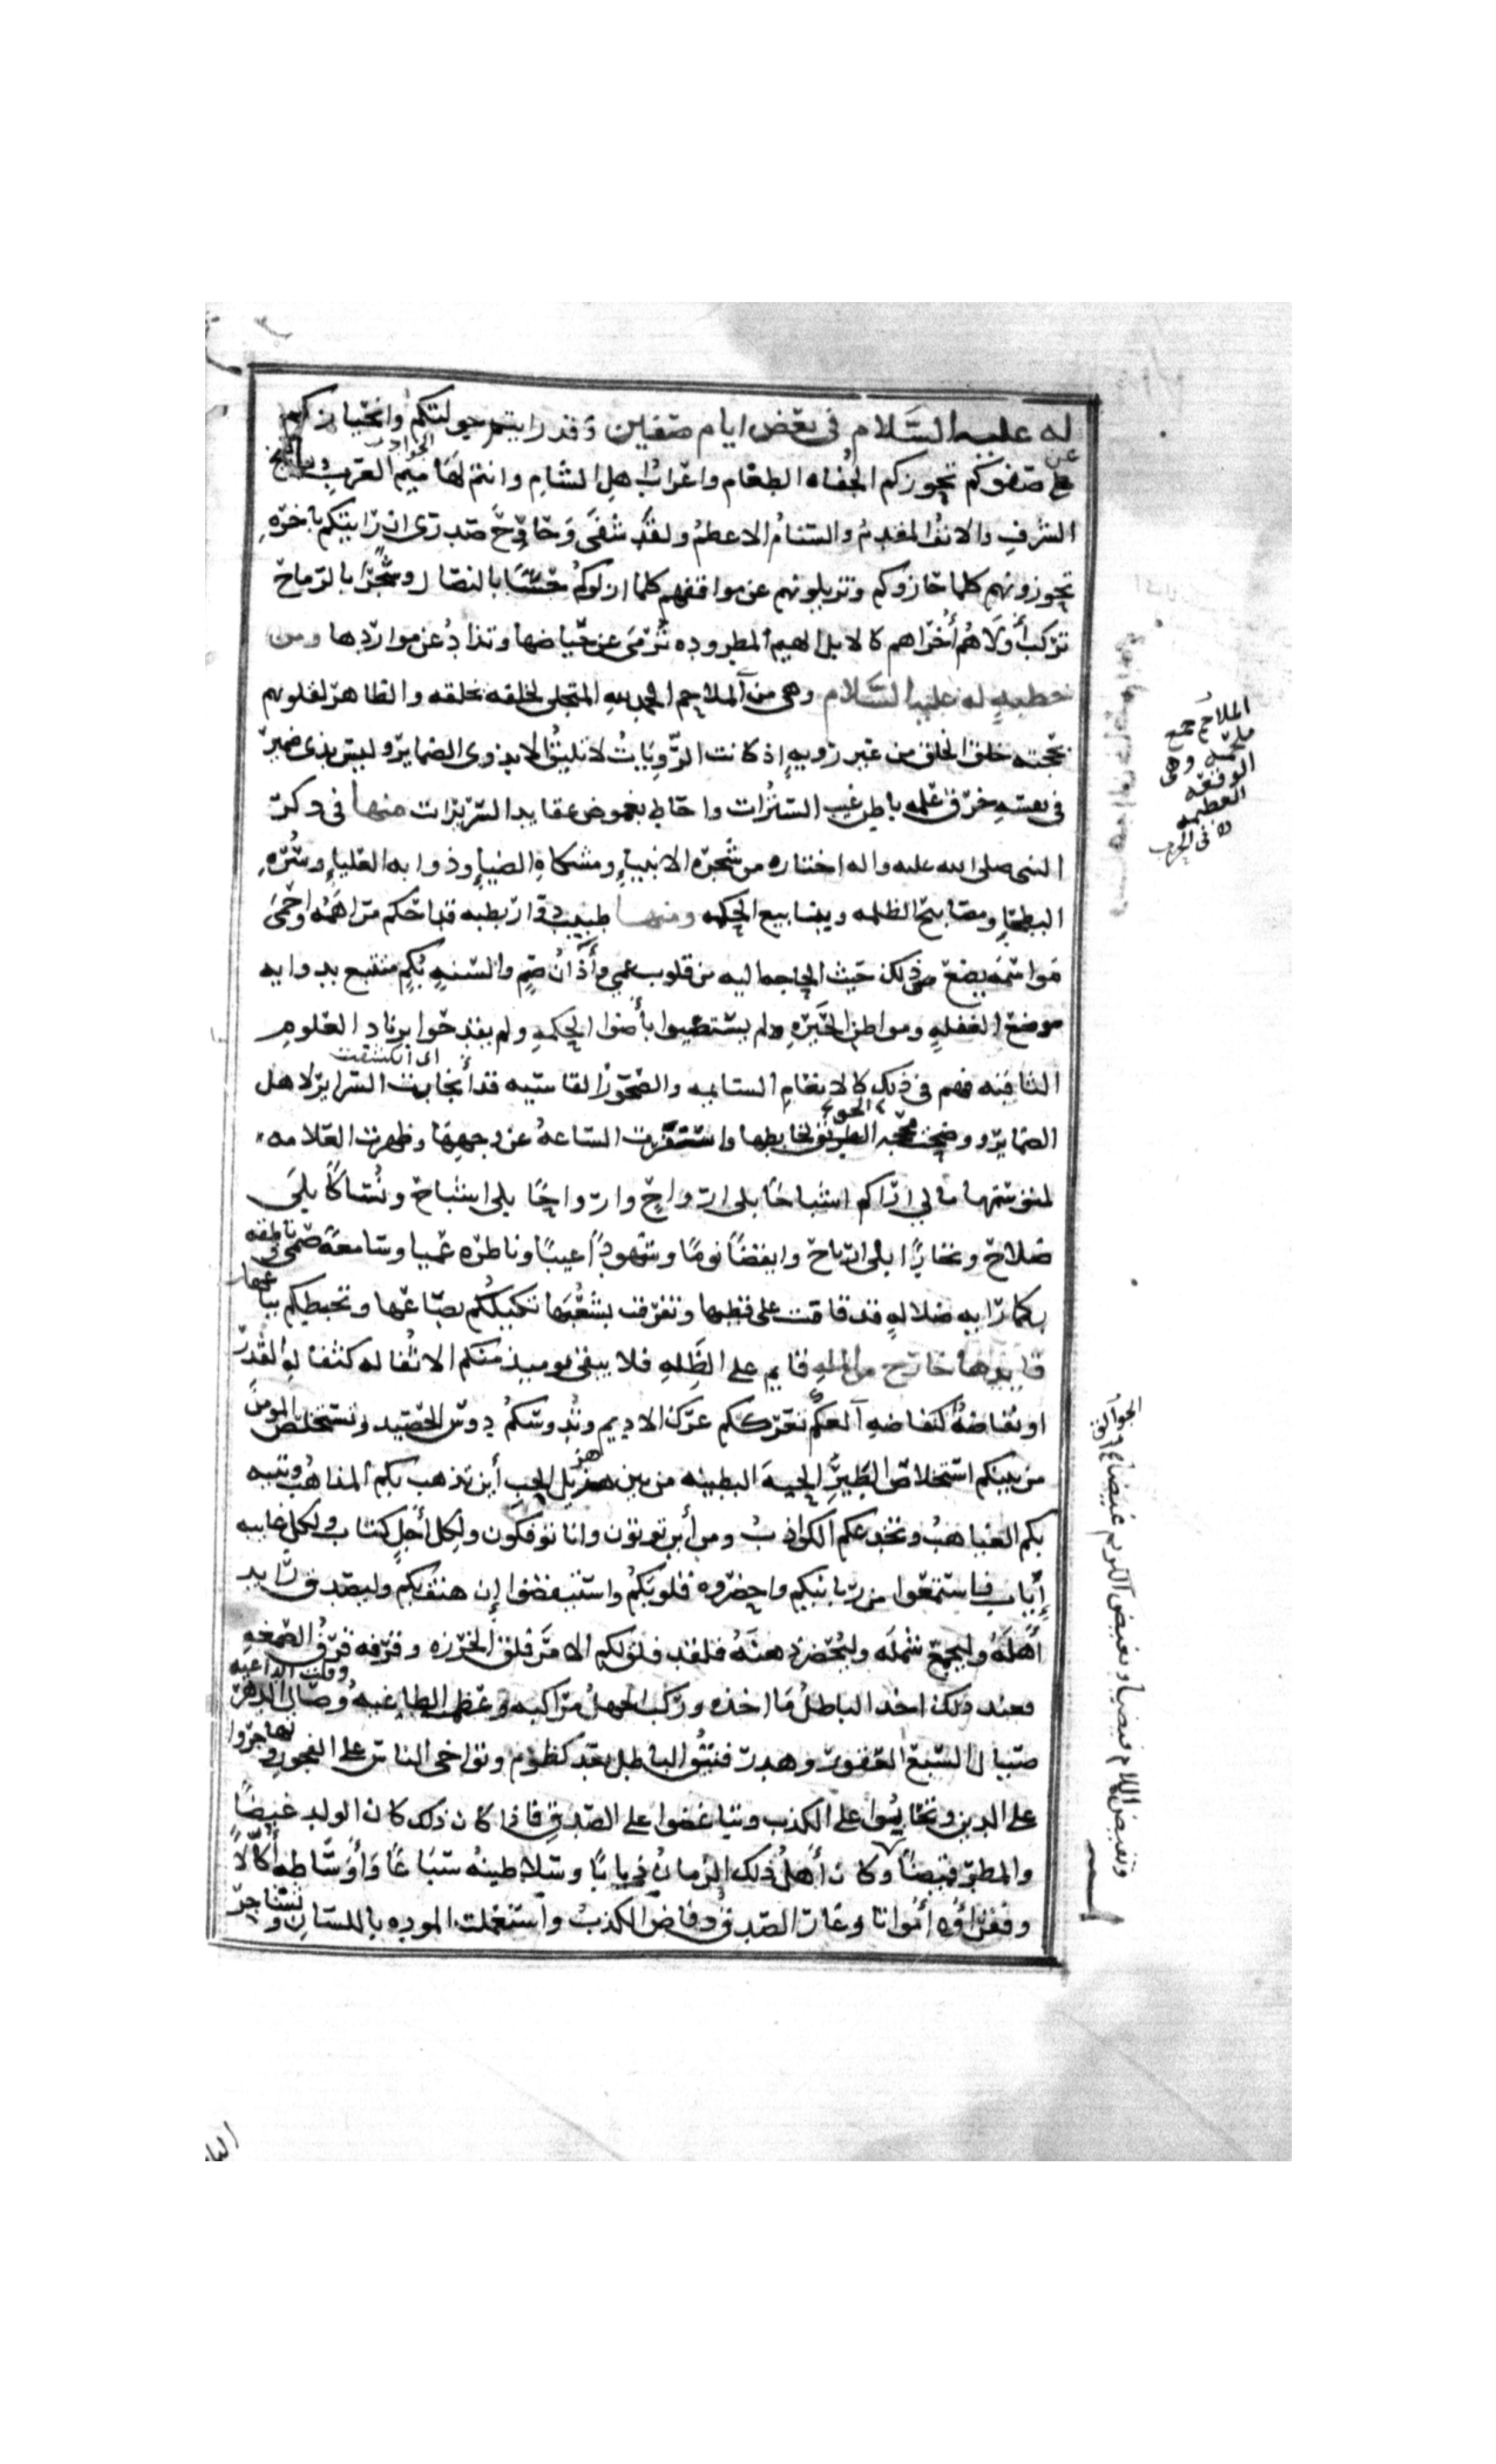 له عليه السلام في بعض ايام صفين وقد رايت جولتكم وانحيازكم
عن صفوفكم تحوزكم الجفاه الطغام واعراب اهل الشام وانتم لهاميم العرب ويافيخ
الشرف والانف المقدم والسنام الاعظم ولقد شفى وحاوح صدرى ان رايتكم باخره
تحوزونهم كما حازوكم وتزيلونهم عن مواقفهم كما ازلوكم حسًا بالنصال وشجرًا بالرماح
تركب أولاهم أخراهم كالابل الهيم المطروده ترمى عن حياضها وتذاد عن مواردها ومن
خطبه له عليه السلام وهى من الملاحم الحمد لله المتجلى لخلقه بخلقه والظاهر لقلوبهم
بحجته خلق الخلق من غير رويه إذ كانت الرويات لا تليق الا بذوى الضماير وليس بذى ضمير
فى نفسه خرق علمه باطن غيب السترات واحاط بغموض عقايد السريرات منها فى ذكر
النبى صلى الله عليه واله اختاره من شجره الانبياء ومشكاه الضياء وذوابه العلياء وسره
البطحاء ومصابيح الظلمه وينابيع الحكمه ومنها طبيب دوار بطبه قد احكم مراهمه واحمى
مواسمه يضع من ذلك حيث الحاجه اليه من قلوب عمي وأذان صم والسنه بكم متتبع بدوايه
موضع الغفله ومواطن الحيره لم يستضيوا بأضوا الحكمه ولم يقدحوا بزناد العلوم
الثاقبه فهم فى ذلك كالانعام السايمه والصخور القاسيه قد أنجابت السراير لاهل
اى انكشفت
الضماير ووضحت محجه الحق لخابطها واسفرت الساعه عن وجهها وظهرت العلامه
لمتوسمها مالي اراكم اشباحًا بلى ارواح وارواحًا بلى اشباح ونساكًا بلى
صلاح وتجارًا بلى ارباح وايقظًا نومًا وشهودًا غيبًا وناظره عميا وسامعة صمى وناطقه
بكما رايه ضلاله قد قامت على قطبها وتفرقت بشعبها تكيلكم بصاعها وتخبطكم بباعها
قايدها خارج من المله قايم على الظله فلا يبقى يوميذ منكم الا ثفاله كثفاله القدر
او نفاضه كنفاضه العكم تعرككم عرك الاديم وتدوسكم دوس الحصيد وتستخلص المومن
من بينكم استخلاص الطير الحبه البطينه من بين هزيل الحب أين تذهب بكم المذاهب وتتيه
بكم الغياهب وتخدعكم الكواذب ومن أين توتون وانا توفكون ولكل أجل كتاب ولكل غايبه
إياب فاستمعوا من ربانيكم واحضروه قلوبكم واستيقظوا إن هتف بكم وليصدق رايد
أهله وليجمع شمله وليحضر ذهنه فلقد فلق لكم الامر فلق الخرزه وقرفه قرف الصمغه
فعند ذلك اخذ الباطل مااخذه وركب الجهل مراكبه وعظمت الطاغيه وقلت الداعيه وصال الدهر
صيال السبع العقور وهدر فنيق الباطل بعد كظوم وتواخى الناس على الفجور وتهاجروا
على الدين وتحابوا على الكذب وتباغضوا على الصدق فاذا كان ذلك كان الولد غيضًا
والمطر قيضًا وكان أهل ذلك الزمان ذيابًا وسلاطينه سباعًا وأوساطه أكالًا
وفقراؤه أمواتا وغار الصدق وفاض الكذب واستعملت الموده باللسان وتشاجر
الملاحم جمع
ملحمه وهى
الوقعه
العظيمه
فى الحرب
وتفيض اللئام فيضا وتغيض الكرام غيضا